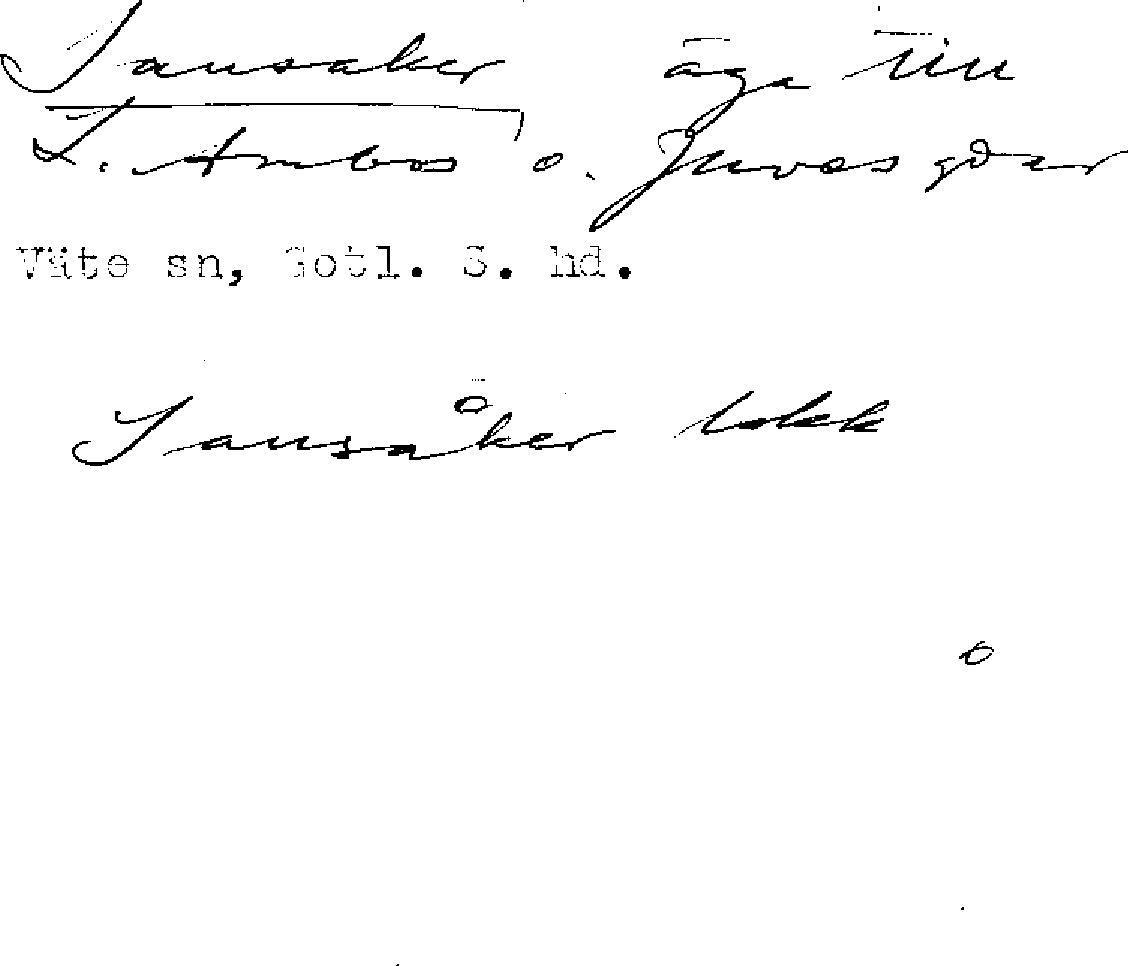 Sansaker äga till
L. Ambos o. Juves gdar
Väte sn, Gotl. S. hd.
Sansåker